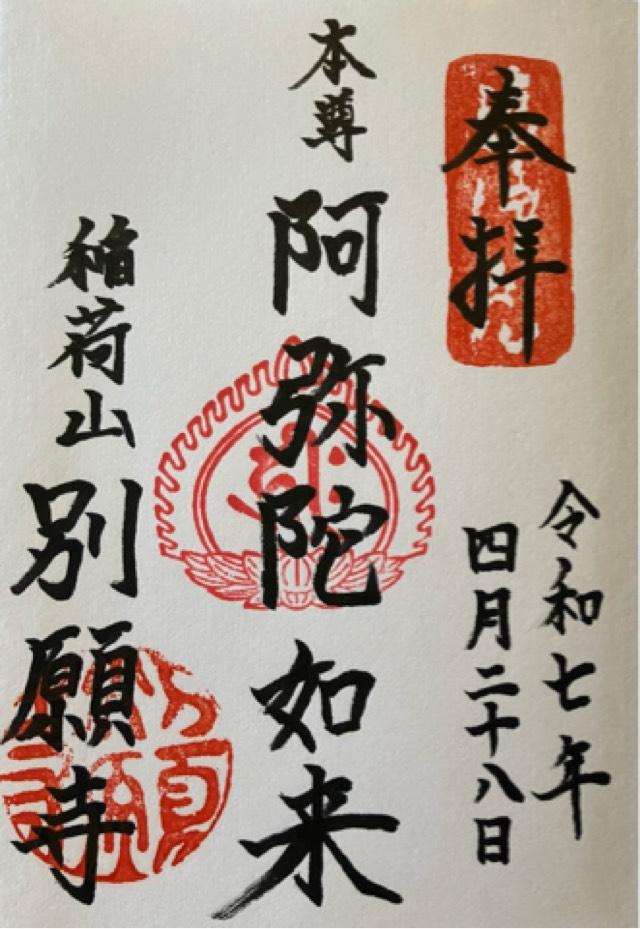 奉拝
令和七年
四月二十八日
本尊 阿弥陀如来
稲荷山 別願寺